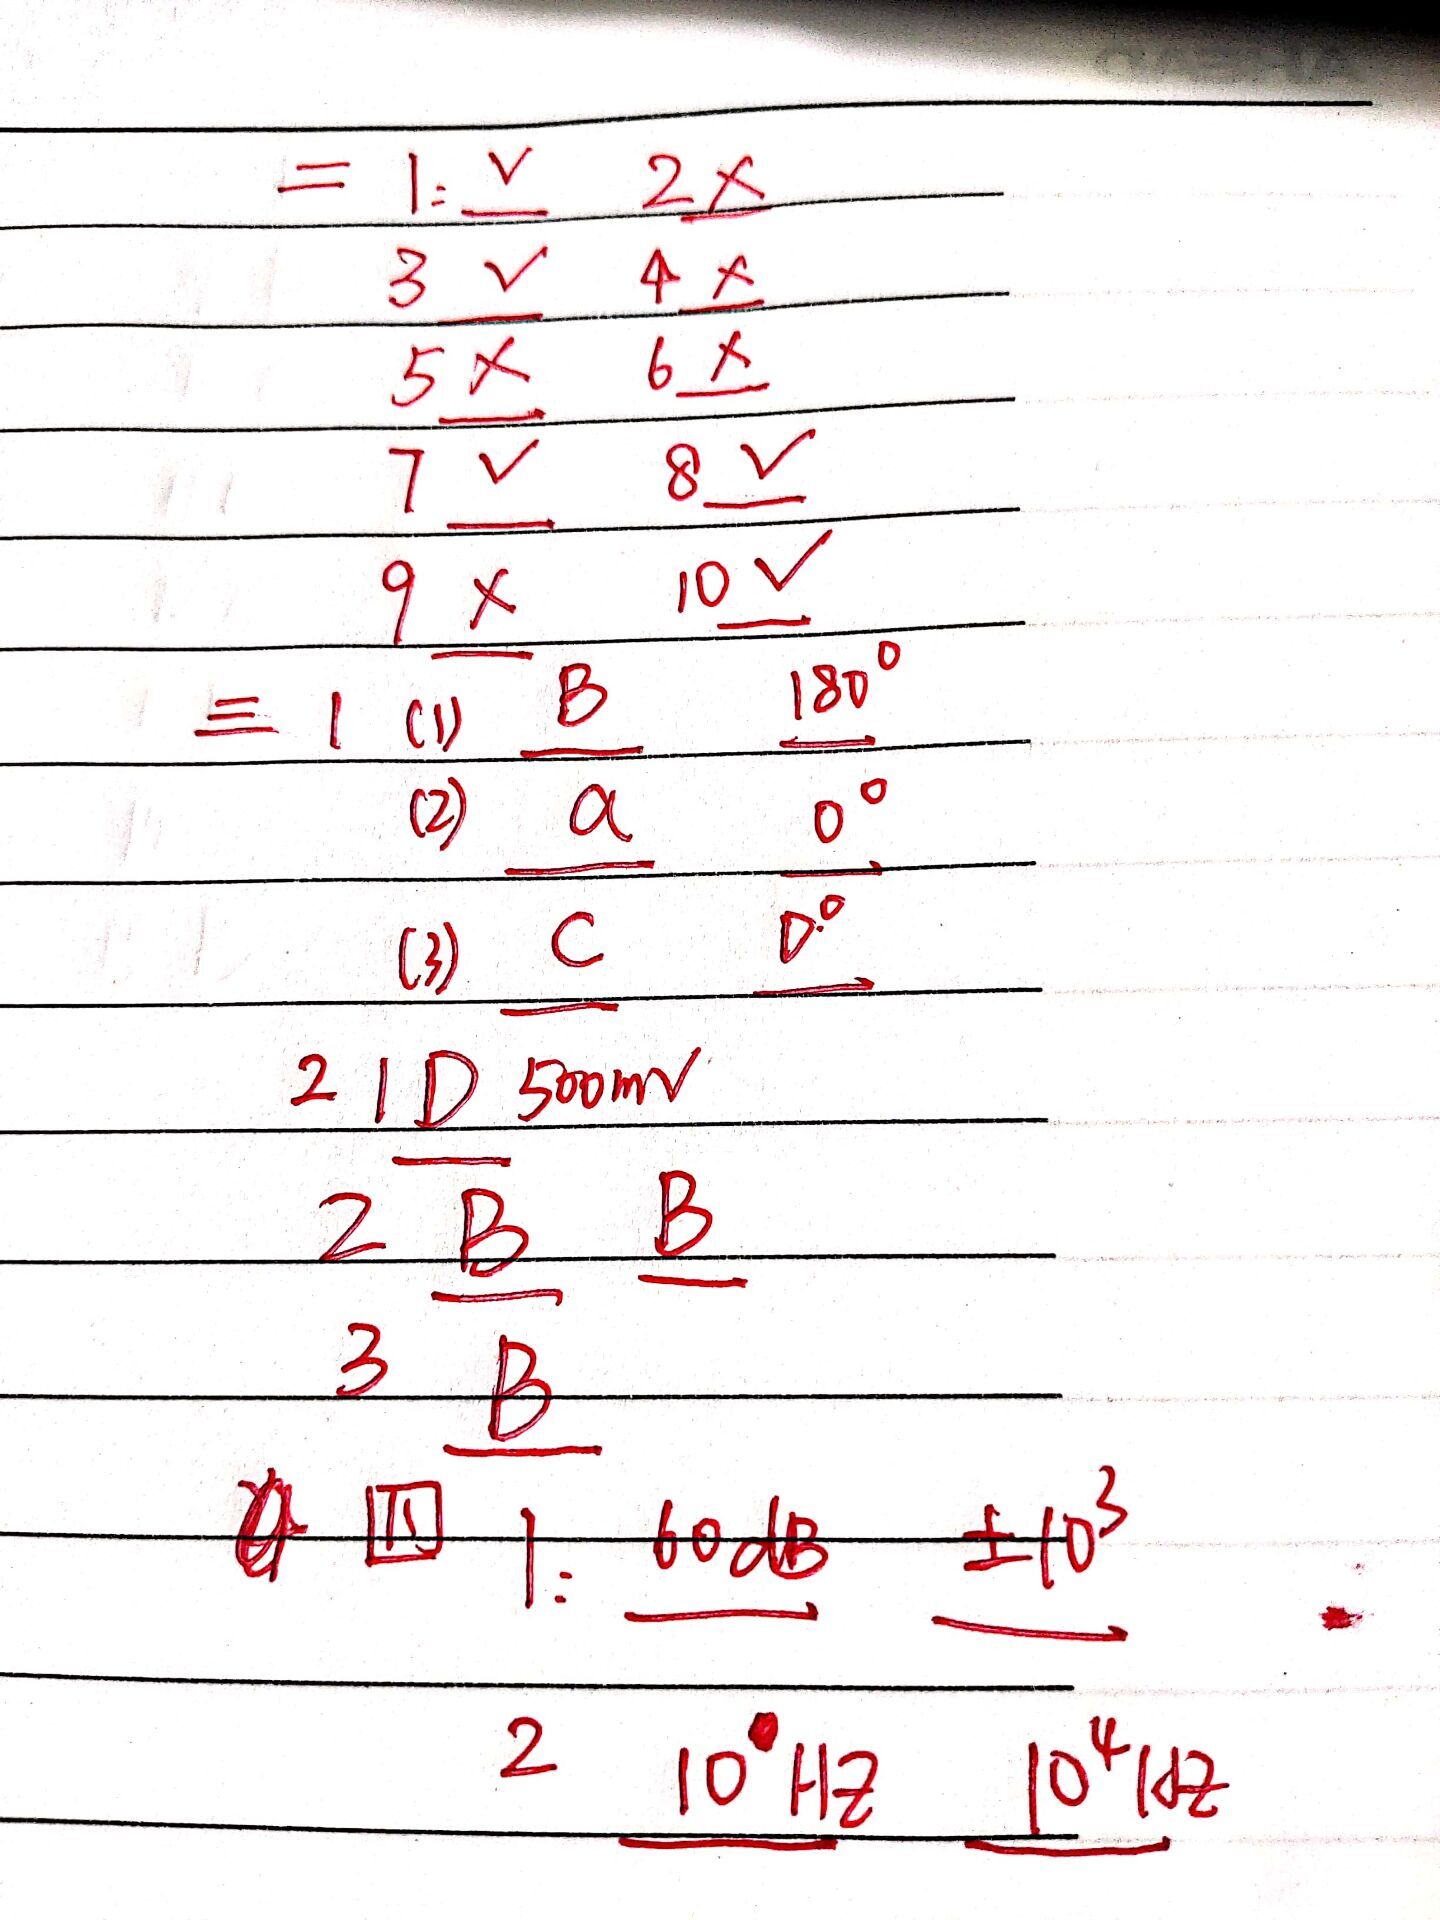 二 1: ✓ 2 ×
3 ✓ 4 ×
5 × 6 ×
7 ✓ 8 ✓
9 × 10 ✓
三 1 (1) B 180°
(2) a 0°
(3) C 0°
2 1 D 500mV
2 B B
3 B
四 1: 60dB ±10³
2 Hz 10⁴Hz